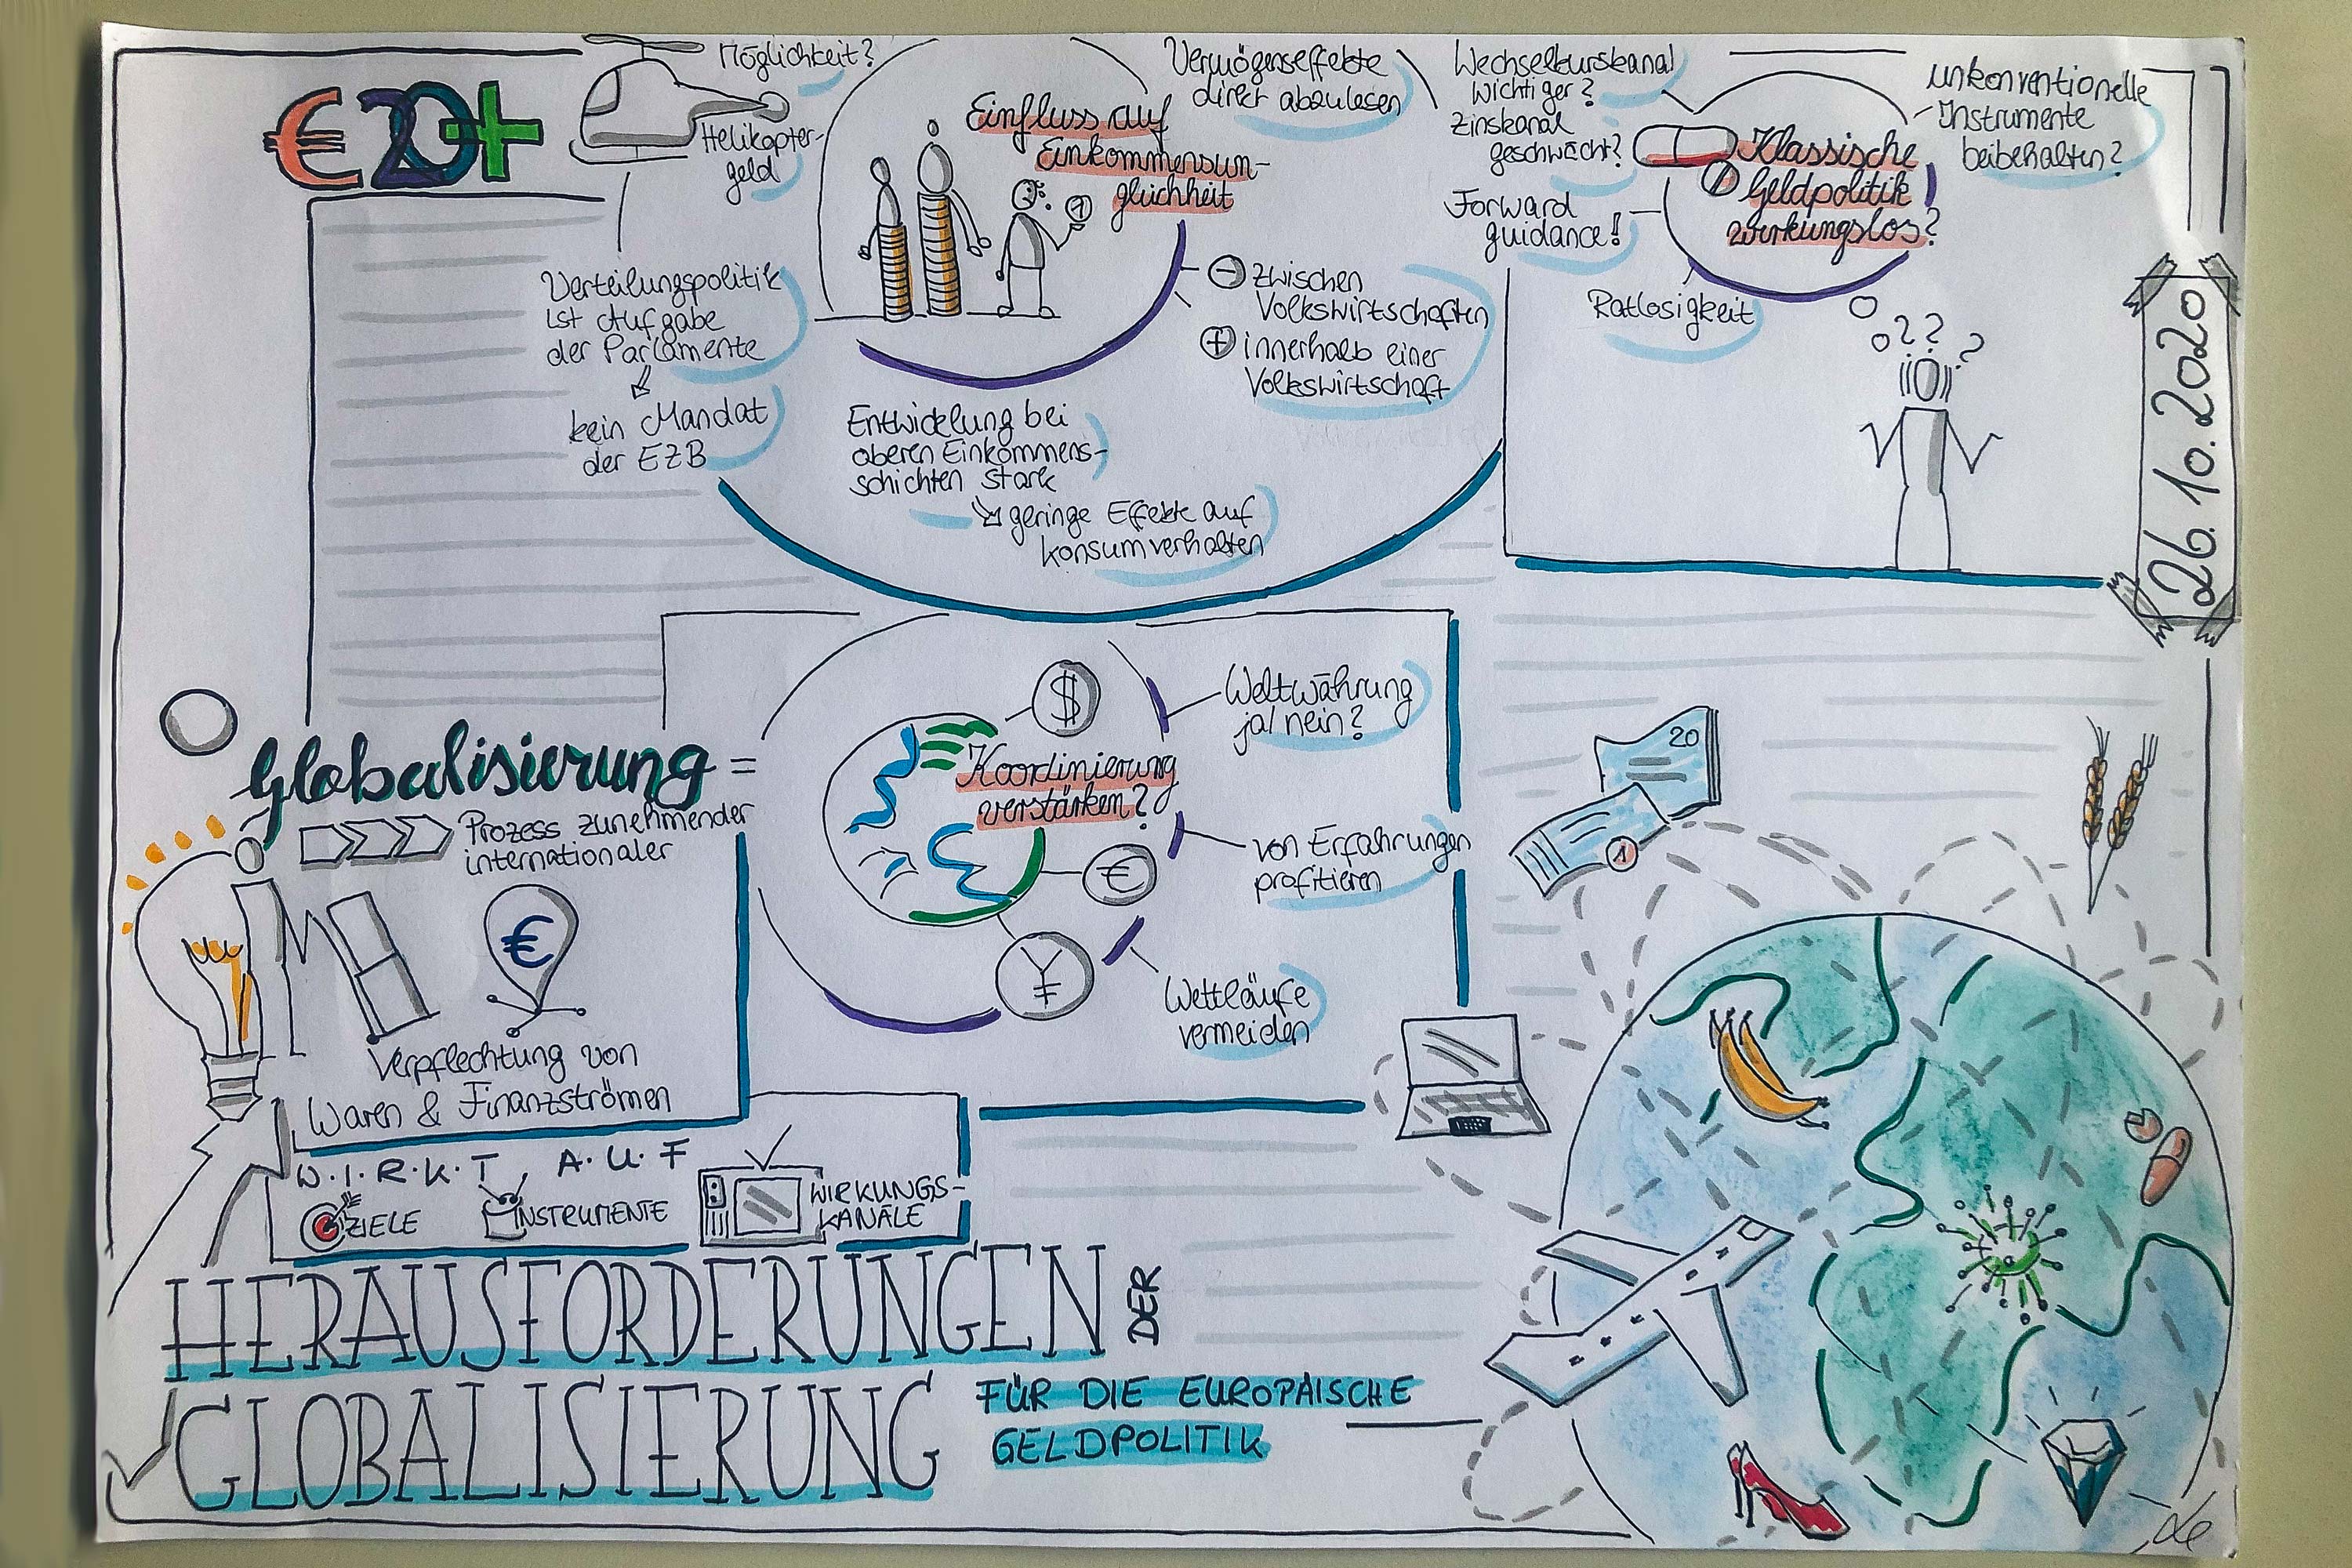 €20+
Möglichkeit?
Helikopter-
geld
Verteilungspolitik
ist Aufgabe
der Parlamente
kein Mandat
der EZB
Einfluss auf
Einkommensun-
gleichheit
1
Vermögenseffekte
direkt abzulesen
- zwischen
Volkswirtschaften
+ innerhalb einer
Volkswirtschaft
Entwicklung bei
oberen Einkommens-
schichten stark
geringe Effekte auf
Konsumverhalten
Wechselkurskanal
wichtiger?
Zinskanal
geschwächt?
Forward
guidance!
Klassische
Geldpolitik
wirkungslos?
unkonventionelle
Instrumente
beibehalten?
Ratlosigkeit
???
26.10.2020
Globalisierung =
Prozess zunehmender
internationaler
€
Verpflechtung von
Waren & Finanzströmen
Koordinierung
verstärken?
$
€
¥
Weltwährung
ja/nein?
von Erfahrungen
profitieren
Wettläufe
vermeiden
20
1
W.I.R.K.T. A.U.F
ZIELE
INSTRUMENTE
WIRKUNGS-
KANÄLE
HERAUSFORDERUNGEN DER
GLOBALISIERUNG
FÜR DIE EUROPÄISCHE
GELDPOLITIK